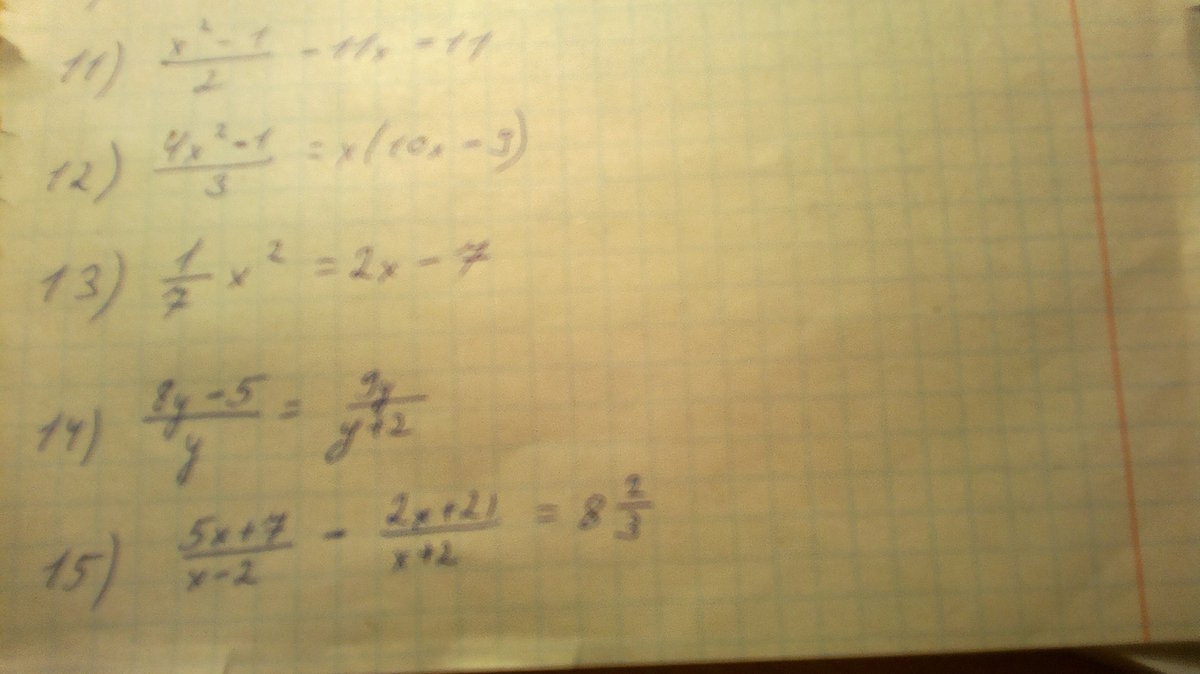 11) (x² - 1)/2 - 11x = 11
12) (4x² - 1)/3 = x(10x - 9)
13) 1/7 x² = 2x - 7
14) (8y - 5)/y = 9y/(y + 2)
15) (5x + 7)/(x - 2) - (2x + 21)/(x + 2) = 8 2/3